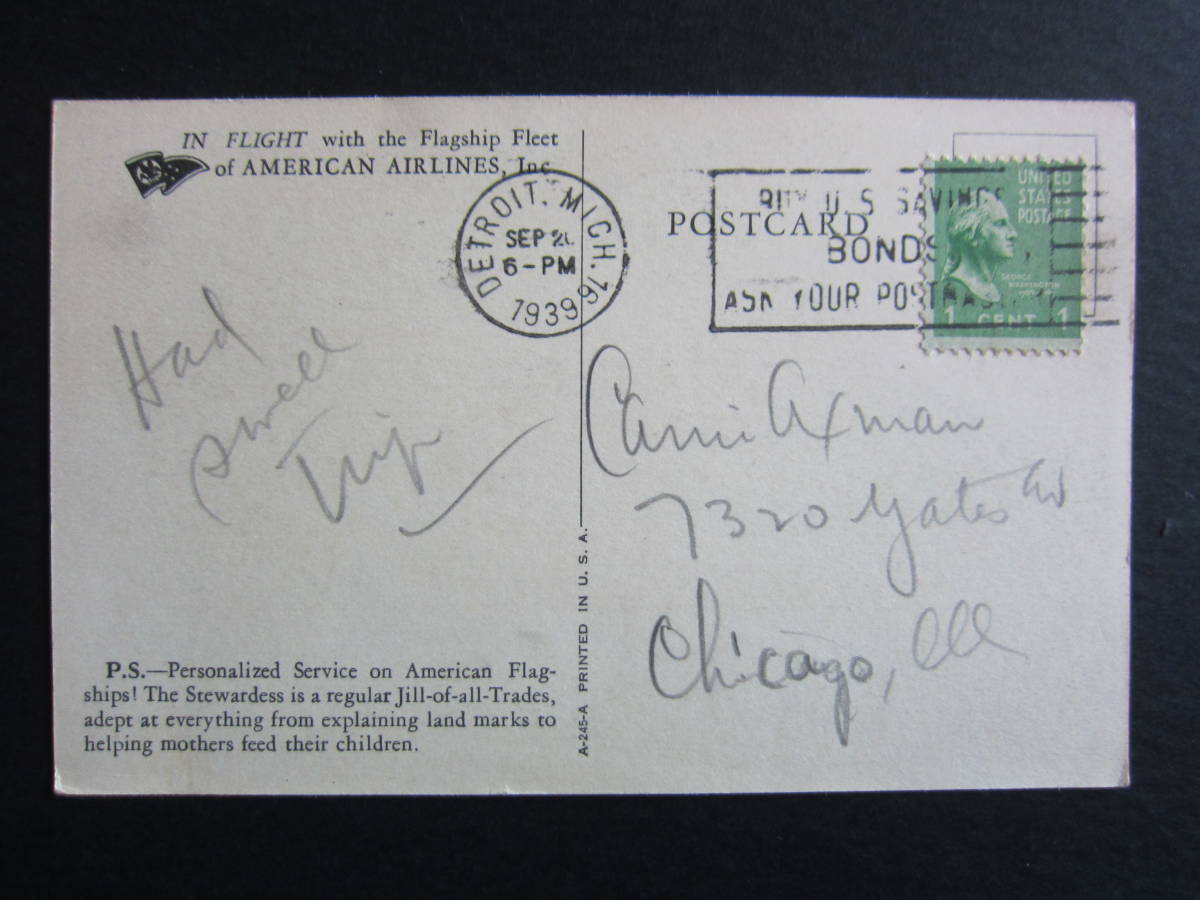 IN FLIGHT with the Flagship Fleet
of AMERICAN AIRLINES, Inc.
DETROIT, MICH. 16
SEP
6-PM
1939
POSTCARD
BUY U S SAVINGS
BONDS
ASK YOUR POSTMAS
UNITED
STATES
POSTAGE
GEORGE
WASHINGTON
1 CENT 1
Had
swell
Trip
Carrie Axman
7320 Yates Av
Chicago, Ill
P.S.—Personalized Service on American Flag-
ships! The Stewardess is a regular Jill-of-all-Trades,
adept at everything from explaining land marks to
helping mothers feed their children.
A-245-A PRINTED IN U. S. A.